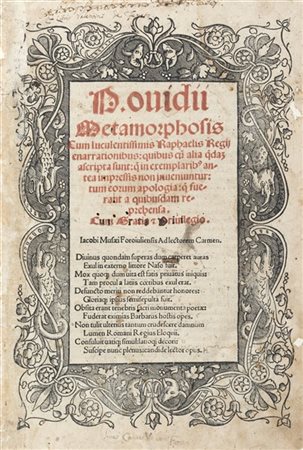 P. ouidii
Metamorphosis
Cum luculentissimis Raphaelis Regij
enarrationibus: quibus cū alia q̄dā
ascripta sunt: q̄ in exemplarib⁹ an
tea impressis non inueniuntur:
tum eorum apologia: q̄ fue
rant a quibusdam re
prehensa.
Cum Gratia ⁊ Priuilegio.
Iacobi Musæi Foroiuliensis Ad lectorem Carmen.
Diuinus quondam superas dum carperet auras
Exul in externo littore Naso fuit.
Mox quoq; dum uita est fatis priuatus iniquis
Tam procul a latiis cœtibus exul erat.
Defuncto meriti non reddebantur honores:
Gloriaq; ipsius semisepulta fuit.
Obstita erant tenebris sacri monumenta poetæ:
Fuderat eximias Barbarus hostis opes.
Non tulit ulterius tantum crudescere damnum
Lumen Romani Regius Eloquii.
Consuluit uatiq; simul latioq; decori:
Suscipe nunc plenum candide lector opus.